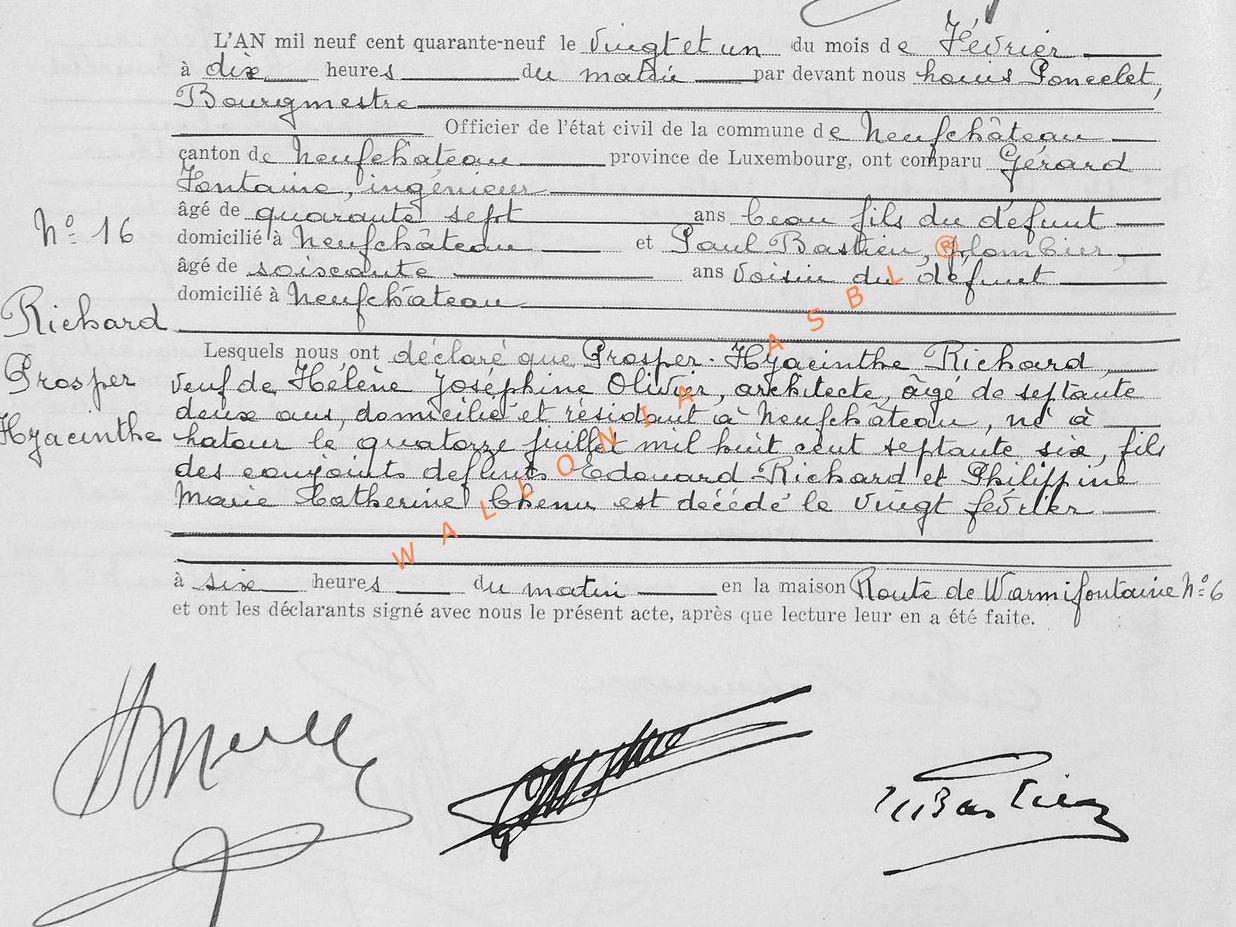 L'AN mil neuf cent quarante-neuf le vingt et un du mois de Février
à dix heures du matin par devant nous Louis Poncelet,
Bourgmestre
Officier de l'état civil de la commune de Neufchâteau
canton de Neufchâteau province de Luxembourg, ont comparu Gérard
Fontaine, ingénieur
âgé de quarante sept ans beau fils du défunt
N° 16
domicilié à Neufchâteau et Paul Bastien, plombier,
âgé de soixante ans voisin du défunt
domicilié à Neufchâteau
Richard
Prosper
Hyacinthe
Lesquels nous ont déclaré que Prosper-Hyacinthe Richard,
veuf de Hélène Joséphine Olivier, architecte, âgé de septante
deux ans, domicilié et résidant à Neufchâteau, né à
Latour le quatorze juillet mil huit cent septante six, fils
des conjoints défunts Edouard Richard et Philippine
Marie Catherine Chenu est décédé le vingt février
à six heures du matin en la maison Route de Warmifontaine N° 6
et ont les déclarants signé avec nous le présent acte, après que lecture leur en a été faite.
WALLONIA ASBL ®
Bastien